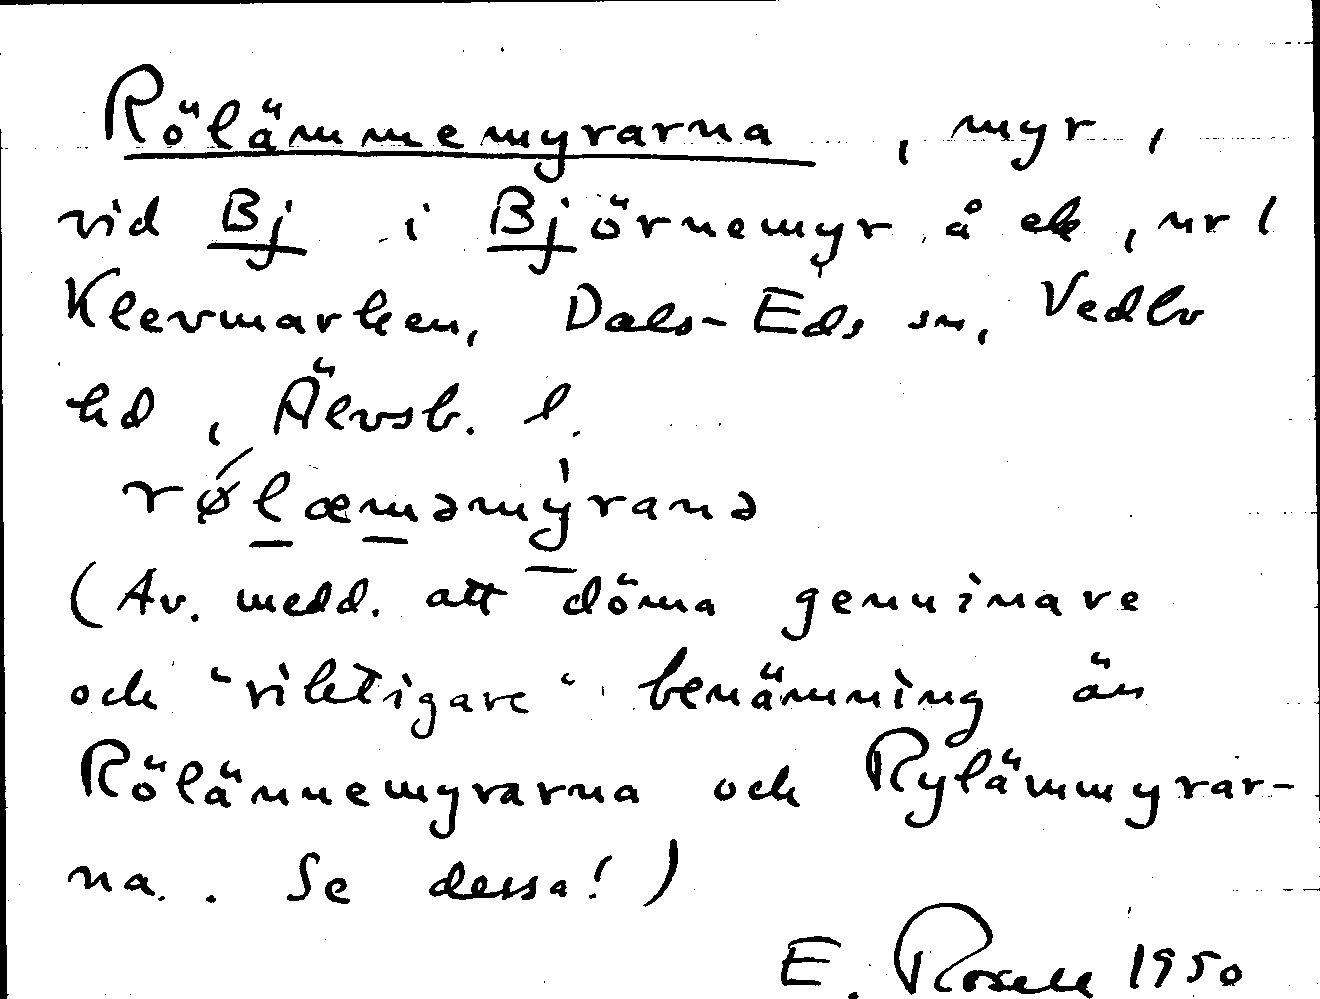 Rölämmemyrarna, myr,
vid Bj i Björnemyr å ek, nr 1
Klevmarken, Dals-Eds sn, Vedbo
hd, Älvsb. l.
rølæməmýranə
(Av. medd. att döma genuinare
och "riktigare" benämning än
Rölännemyrarna och Rylämmyrar-
na. Se dessa!)
E. Rosell 1950